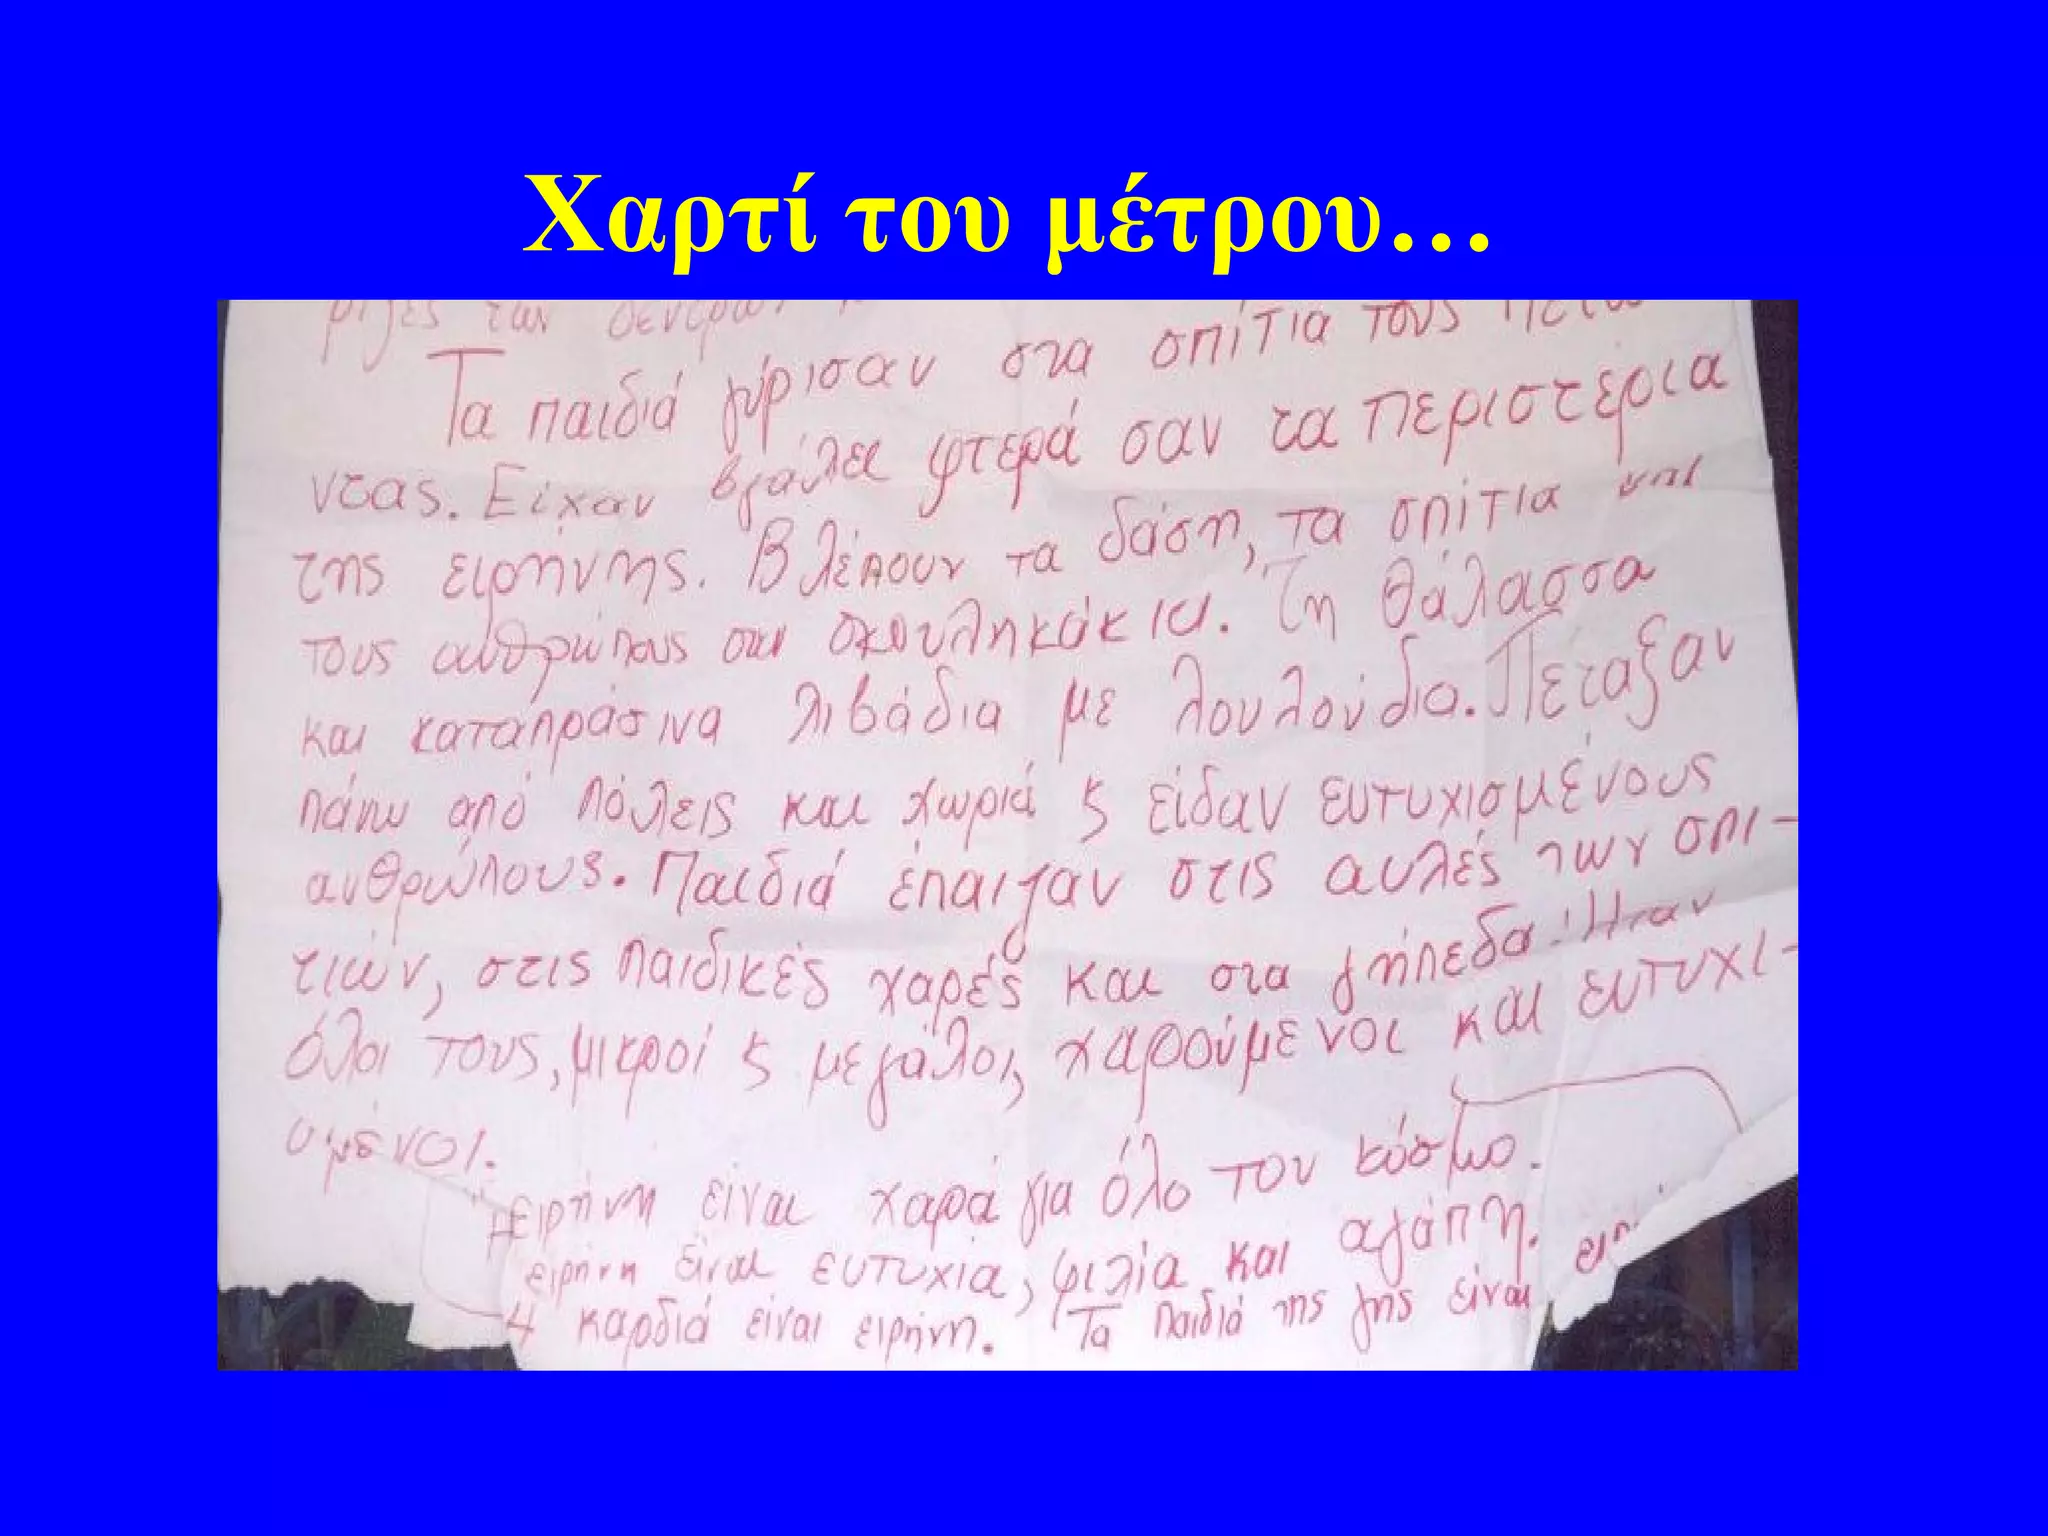 Χαρτί του μέτρου…
ρίζες των δέντρων
Τα παιδιά γύρισαν στα σπίτια τους πετώ
ντας. Είχαν βγάλει φτερά σαν τα περιστέρια
της ειρήνης. Βλέπουν τα δάση, τα σπίτια και
τους ανθρώπους σαν σκουληκάκια. Τη θάλασσα
και καταπράσινα λιβάδια με λουλούδια. Πέταξαν
πάνω από πόλεις και χωριά ϗ είδαν ευτυχισμένους
ανθρώπους. Παιδιά έπαιζαν στις αυλές των σπι-
τιών, στις παιδικές χαρές και στα γήπεδα. Ήταν
όλοι τους, μικροί ϗ μεγάλοι, χαρούμενοι και ευτυχι-
σμένοι.
Η ειρήνη είναι χαρά για όλο τον κόσμο.
ειρήνη είναι ευτυχία, φιλία και αγάπη.
Η καρδιά είναι ειρήνη. Τα παιδιά της γης είναι